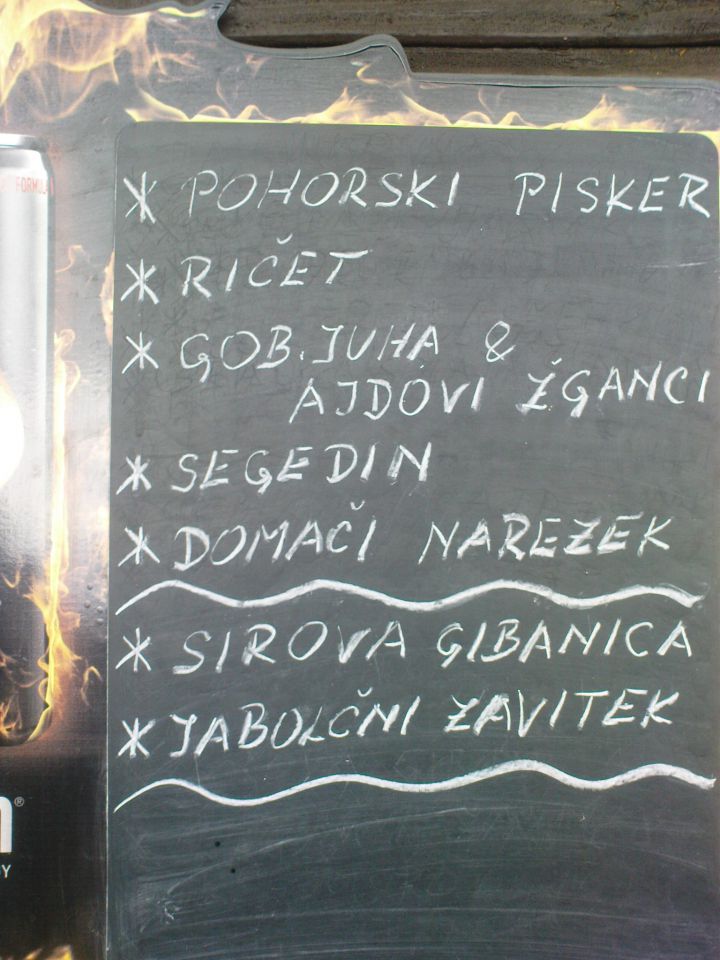 FORMULA
* POHORSKI PISKER
* RIČET
* GOB. JUHA &
AJDOVI ŽGANCI
* SEGEDIN
* DOMAČI NAREZEK
* SIROVA GIBANICA
* JABOLČNI ZAVITEK